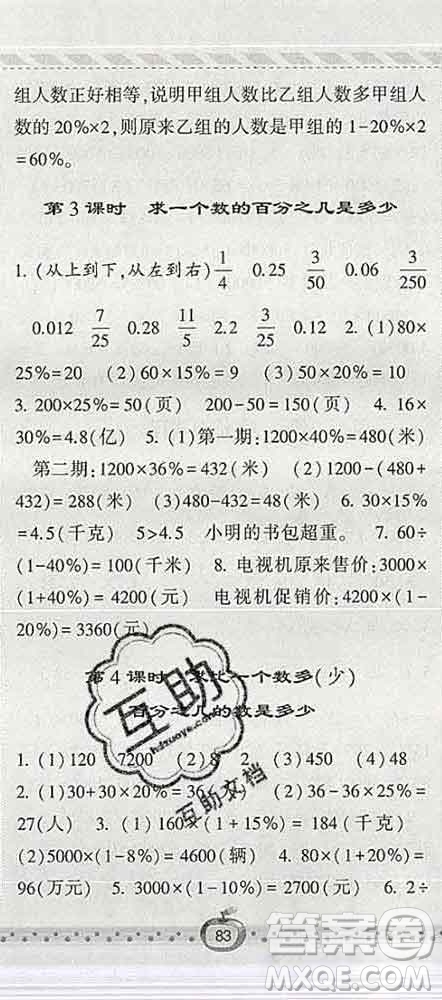 组人数正好相等,说明甲组人数比乙组人数多甲组人
数的20%×2,则原来乙组的人数是甲组的1-20%×2
=60%。
第3课时 求一个数的百分之几是多少
1. (从上到下,从左到右) 1/4 0.25 3/50 0.06 3/250
0.012 7/25 0.28 11/5 2.2 3/25 0.12 2. (1)80×
25%=20 (2)60×15%=9 (3)50×20%=10
3. 200×25%=50(页) 200-50=150(页) 4. 16×
30%=4.8(亿) 5. (1)第一期:1200×40%=480(米)
第二期:1200×36%=432(米) (2)1200-(480+
432)=288(米) (3)480-432=48(米) 6. 30×15%
=4.5(千克) 5>4.5 小明的书包超重。 7. 60÷
(1-40%)=100(千米) 8. 电视机原来售价:3000×
(1+40%)=4200(元) 电视机促销价:4200×(1-
20%)=3360(元)
第4课时 求比一个数多(少)
百分之几的数是多少
1. (1)120 7200 (2)8 2 (3)450 (4)48
2. (1)30+30×20%=36 (2)36-36×25%=
27(人) 3. (1)160×(1+15%)=184(千克)
(2)5000×(1-8%)=4600(辆) 4. 80×(1+20%)=
96(万元) 5. 3000×(1-10%)=2700(元) 6. 2÷
83
互助
互助文档
答案圈
MXQE.COM